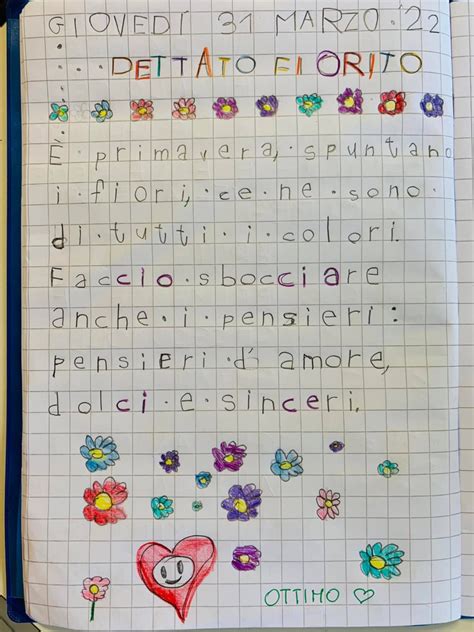 GIOVEDÍ 31 MARZO '22
DETTATO FIORITO
È primavera, spuntano
i fiori, ce ne sono
di tutti i colori.
Faccio sbocciare
anche i pensieri:
pensieri d'amore,
dolci e sinceri.
OTTIMO